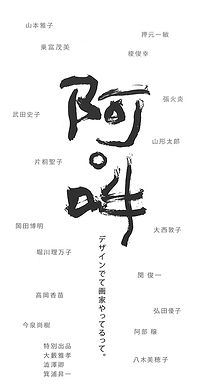 山本雅子
押元一敏
巣富茂美
榎俊幸
張火炎
武田史子
山形太郎
片桐聖子
阿。吽
岡田博明
大西敦子
堀川理万子
デザインでて画家やってるって。
関 俊一
高岡香苗
弘田優子
今泉尚樹
阿部 穣
特別出品
大藪雅孝
澁澤卿
箕浦昇一
八木美穂子